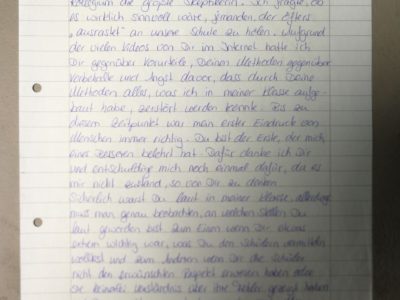 Kollegium die größte Skeptikerin. Ich fragte, ob
es wirklich sinnvoll wäre, jemanden, der öfters
„ausrastet" an unsere Schule zu holen. Aufgrund
der vielen Videos von Dir im Internet hatte ich
Dir gegenüber Vorurteile, Deinen Methoden gegenüber
Vorbehalte und Angst davor, dass durch Deine
Methoden alles, was ich in meiner Klasse aufge-
baut habe, zerstört werden könnte. Bis zu
diesem Zeitpunkt war mein erster Eindruck von
Menschen immer richtig. Du bist der Erste, der mich
eines Besseren belehrt hat. Dafür danke ich Dir
und entschuldige mich noch einmal dafür, da es
mir nicht zustand, so von Dir zu denken.
Sicherlich warst Du laut in meiner Klasse, allerdings
muss man genau beobachten, an welchen Stellen Du
laut geworden bist. Zum Einen wenn Dir etwas
extrem wichtig war, was Du den Schülern vermitteln
wolltest und zum Anderen wenn Dir die Schüler
nicht den erwünschten Respekt erwiesen haben oder
sie keinerlei Verständnis über ihre Fehler gezeigt haben